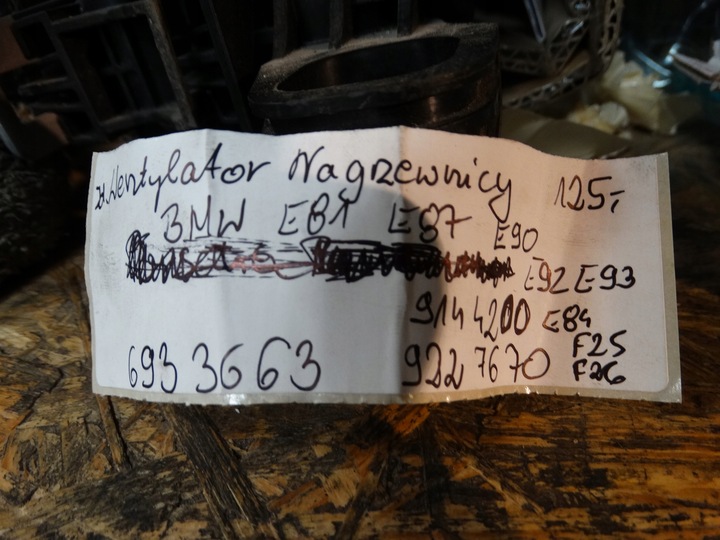 Wentylator Nagrzewnicy 125,-
BMW E81 E87 E90
E92 E93
914 4200 E84
693 3663 922 7670 F25
F26